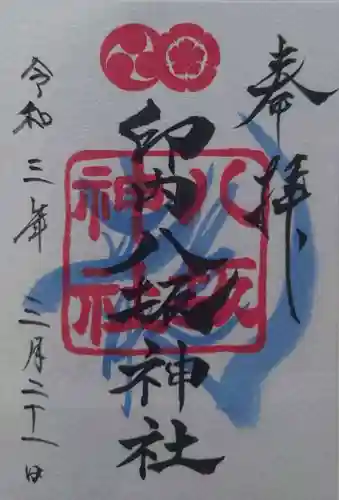 奉拝
印内八坂神社
八坂神社
令和三年三月二十八日